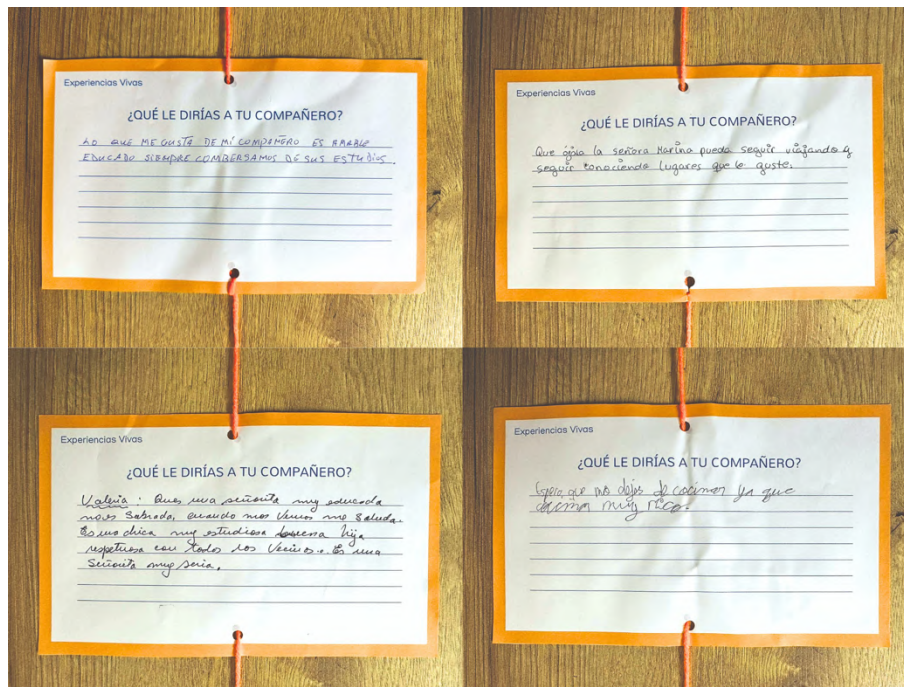 Experiencias Vivas
¿QUÉ LE DIRÍAS A TU COMPAÑERO?
LO QUE ME GUSTA DE MI COMPAÑERO ES AMABLE
EDUCADO SIEMPRE COMBERSAMOS DE SUS ESTUDIOS.
Experiencias Vivas
¿QUÉ LE DIRÍAS A TU COMPAÑERO?
Que ojala la señora Karina pueda seguir viajando y
seguir conociendo lugares que le guste.
Experiencias Vivas
¿QUÉ LE DIRÍAS A TU COMPAÑERO?
Valeria: Ques una señorita muy educada
no es Sabrada, cuando nos Vemos me Saluda.
Es una chica muy estudiosa buena hija
respetuosa con todos los Vecinos. Es una
Señorita muy Seria.
Experiencias Vivas
¿QUÉ LE DIRÍAS A TU COMPAÑERO?
que no dejes de cocinar ya que
cocinas muy rico.